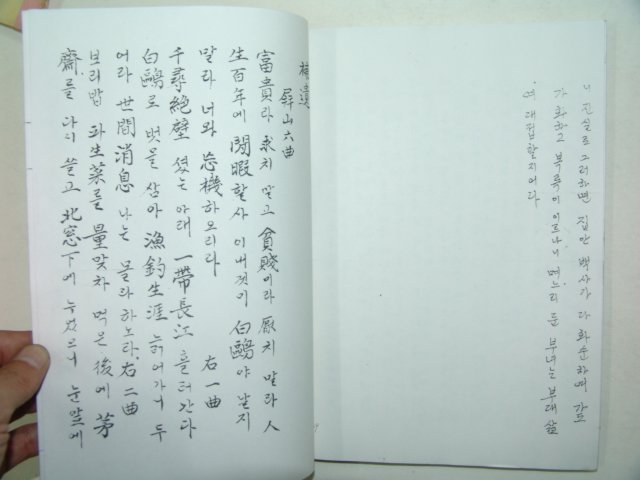 니 진실로 그러하면 집안 백사가 다 화순하며 가도
가 화하고 복록이 이르나니 며느리 둔 부녀는 부대 삶
여 대접할지어다
補遺
屛山六曲
富貴라 求치 말고 貧賤이라 厭치 말라 人
生百年에 閒暇할사 이내것이 白鷗야 날지
말라 너와 忘機하오리라 右一曲
千尋絶壁 셨는 아래 一帶長江 흘러간다
白鷗로 벗을 삼아 漁釣生涯 늙어가니 두
어라 世間消息 나는 몰라 하노라 右二曲
보리밥 파生菜를 量맞차 먹은 後에 茅
齋를 다시 쓸고 北窓下에 누엇으니 눈앞에